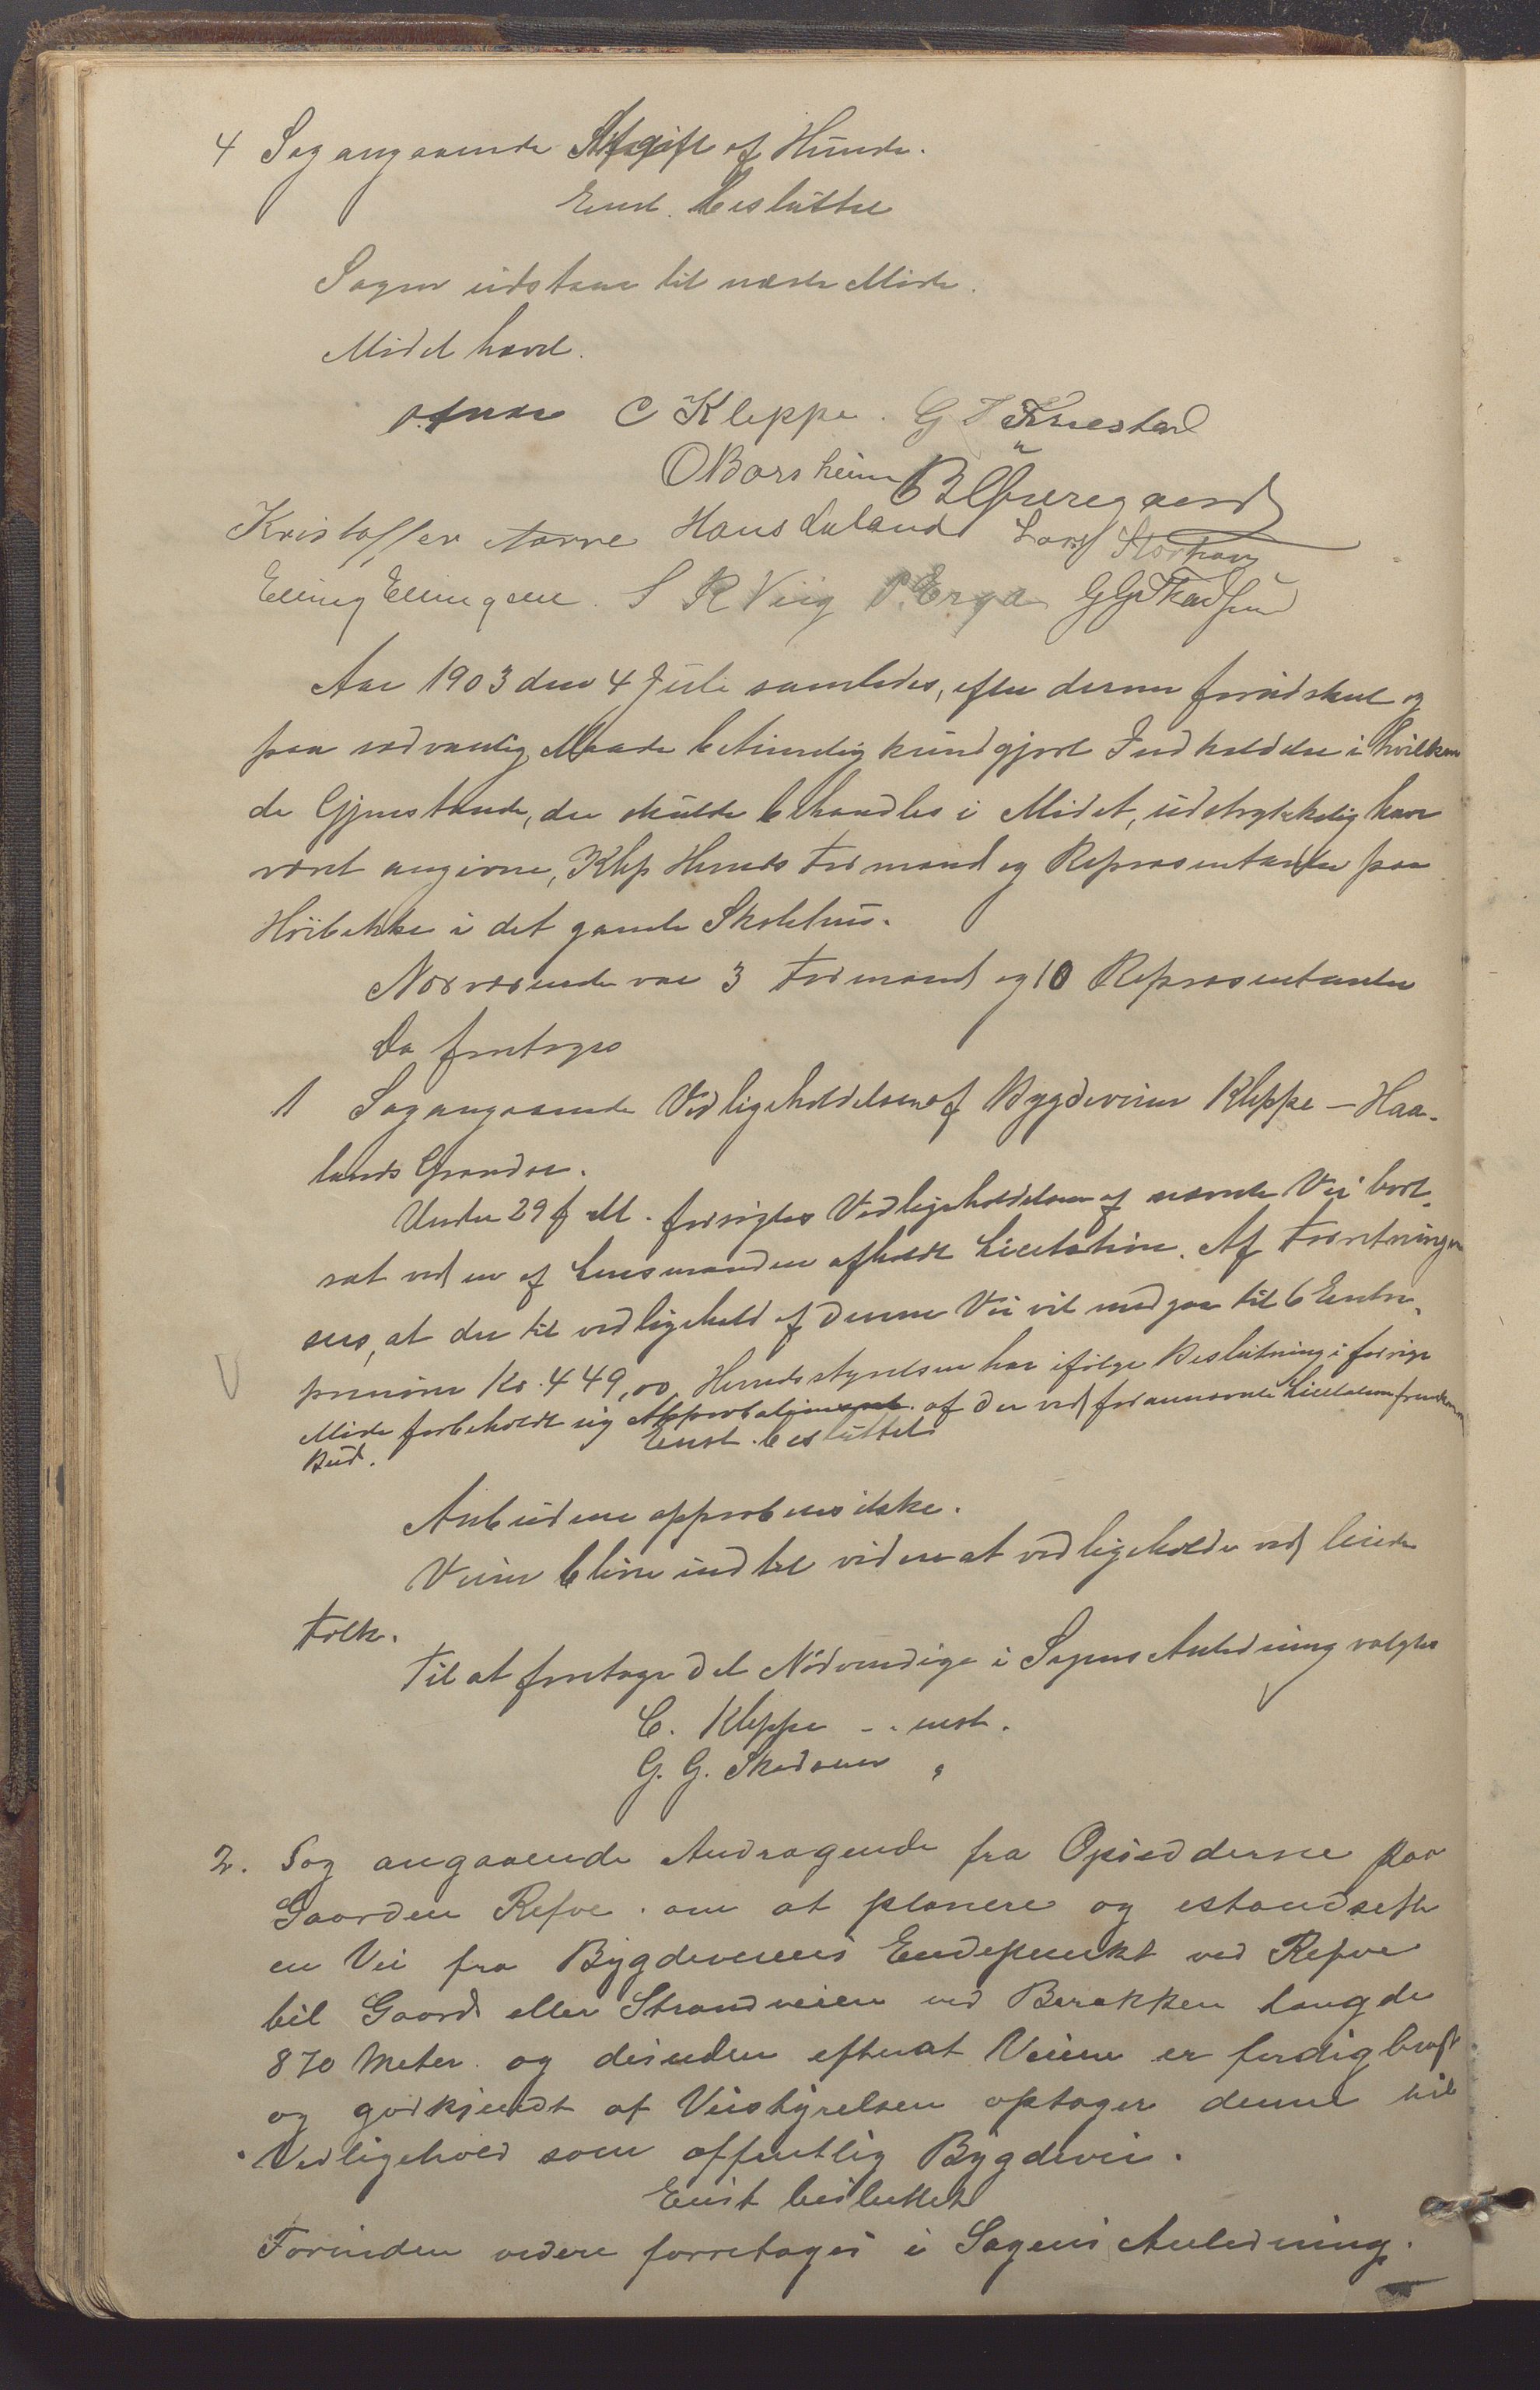 4 Sag angaaende Afgift af Hunde.
Enst. besluttet
Sagen udstaar til næste Møde.
Mødet hævet.
C Kleppe. G T Tjuestad
O Borsheim B
Kristoffer Aarre Hans Laland Lars Storhaug
Elling Ellingsen. S R Viig P. Erga G G Skadsem
Aar 1903 den 4 Juli samledes, efter dertil forud skeet og
paa sædvanlig Maade betimelig kundgjort Indkaldelse i hvilken
de Gjenstande, der skulde behandles i Mødet, udtrykkelig have
været angivne, Klep Herreds Formænd og Repræsentanter paa
Høibakke i det gamle Skolehus.
Nærværende var 3 Formænd og 10 Repræsentanter
Da foretoges
1 Sag angaaende Vedligeholdelsen af Bygdeveien Kleppe - Haa-
lands Grændse.
Under 29 f. M. forsøgtes Vedligeholdelsen af nævnte Vei bort-
sat ved en af Lensmanden afholdt Licitation. Af Forretningen
sees, at der til vedligehold af denne Vei vil medgaa til 6 Entre-
prenører Kr. 449,00. Herredsstyrelsen har ifølge Beslutning i forrige
Møde forbeholdt sig Approbation af de ved forannævnte Licitation fremkomne
Bud.
Enst. besluttet
Anbudene approberes ikke.
Veien bliver indtil videre at vedligeholde ved leiede
Folk.
Til at foretage det Nødvendige i Sagens Anledning valgtes
C. Kleppe - . enst.
G. G. Skadsem "
2. Sag angaaende Andragende fra Opsidderne paa
Gaarden Refve. om at planere og istandsette
en Vei fra Bygdeveiens Endepunkt ved Refve
til Gaards eller Strandveien ved Barakken Længde
870 Meter. og desuden efterat Veien er ferdigbragt
og godkjendt af Veistyrelsen optages denne til
Vedligehold som offentlig Bygdevei.
Enst besluttet
Forinden videre forretages i Sagens Anledning.